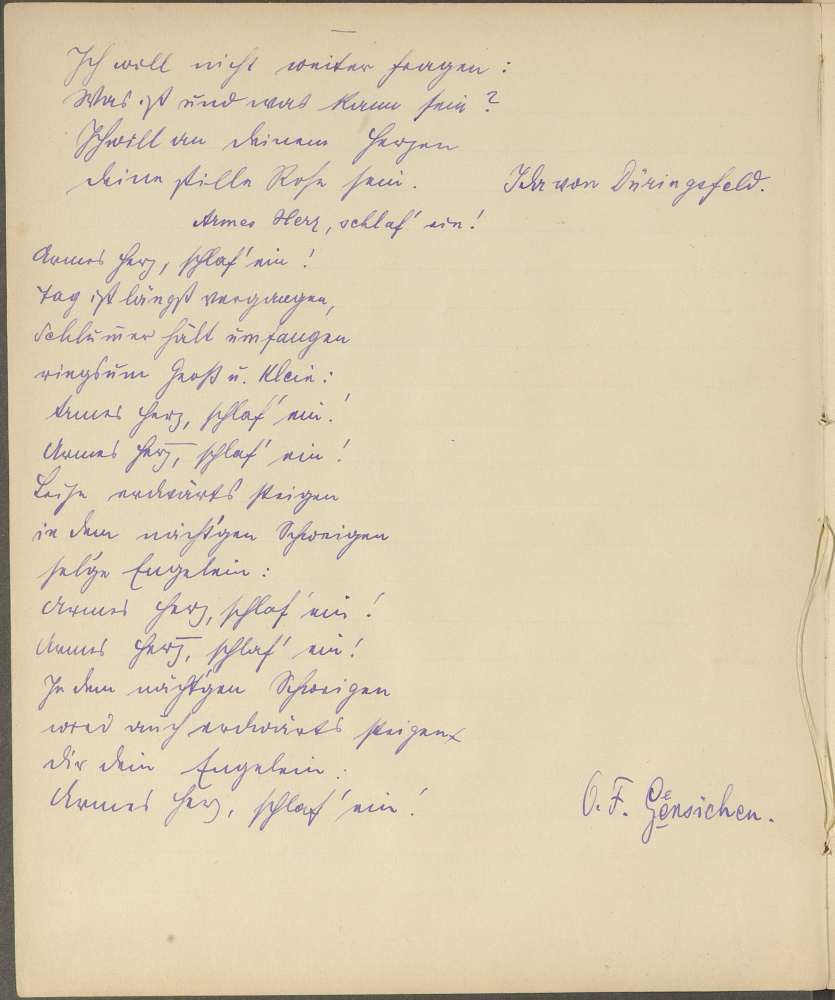 Ich will nicht weiter fragen:
Was ist und was kann sein?
Ich will an deinem Herzen
deine stille Rose sein. Ida von Düringsfeld.
Armes Herz, schlaf' ein!
Armes Herz, schlaf' ein!
Tag ist längst vergangen,
Schlum̅er hält umfangen
ringsum Groß u. Klein:
Armes Herz, schlaf' ein!
Armes Herz, schlaf' ein!
Leise erdwärts steigen
in dem nächt'gen Schweigen
sel'ge Engelein:
Armes Herz, schlaf' ein!
Armes Herz, schlaf' ein!
In dem nächt'gen Schweigen
wird auch erdwärts steigen
dir dein Engelein:
Armes Herz, schlaf' ein! O. F. Gensichen.